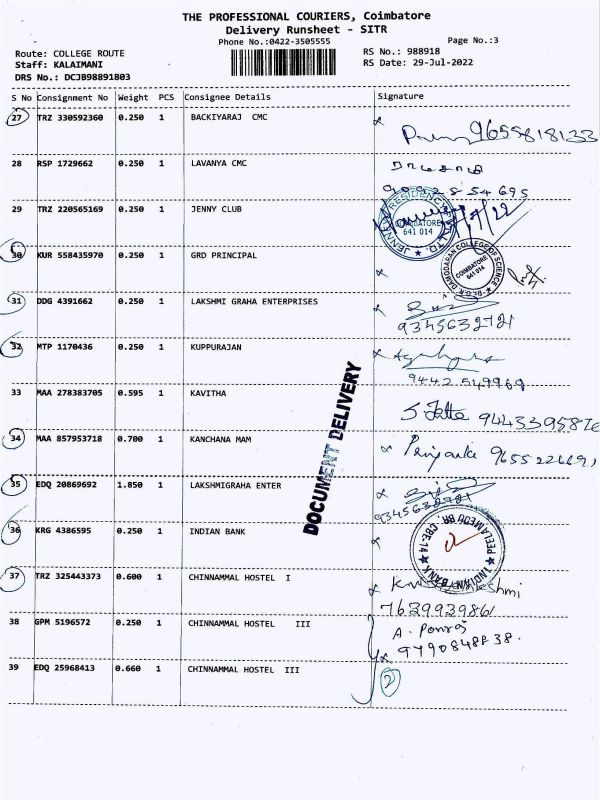 THE PROFESSIONAL COURIERS, Coimbatore
Delivery Runsheet - SITR
Phone No.:0422-3505555
Page No.:3
Route: COLLEGE ROUTE
RS No.: 988918
Staff: KALAIMANI
RS Date: 29-Jul-2022
DRS No.: DCJB98891803
S No Consignment No Weight PCS Consignee Details Signature
27 TRZ 330592360 0.250 1 BACKIYARAJ CMC
9655818133
28 RSP 1729662 0.250 1 LAVANYA CMC
90928 54695
29 TRZ 220565169 0.250 1 JENNY CLUB
COIMBATORE
641 014
30 KUR 558435970 0.250 1 GRD PRINCIPAL
DAMODARAN COLLEGE OF SCIENCE
COIMBATORE
641 014
31 DDG 4391662 0.250 1 LAKSHMI GRAHA ENTERPRISES
9345632721
32 MTP 1170436 0.250 1 KUPPURAJAN
9442 549969
33 MAA 278383705 0.595 1 KAVITHA
9443395876
34 MAA 857953718 0.700 1 KANCHANA MAM
Priyanka
DOCUMENT DELIVERY
35 EDQ 20869692 1.850 1 LAKSHMIGRAHA ENTER
9345632721
36 KRG 4386595 0.250 1 INDIAN BANK
INDIAN BANK PEELAMEDU BR. CBE-14
37 TRZ 325443373 0.600 1 CHINNAMMAL HOSTEL I
7639939861
38 GPM 5196572 0.250 1 CHINNAMMAL HOSTEL III
A. Ponraj
9790848838.
39 EDQ 25968413 0.660 1 CHINNAMMAL HOSTEL III
2